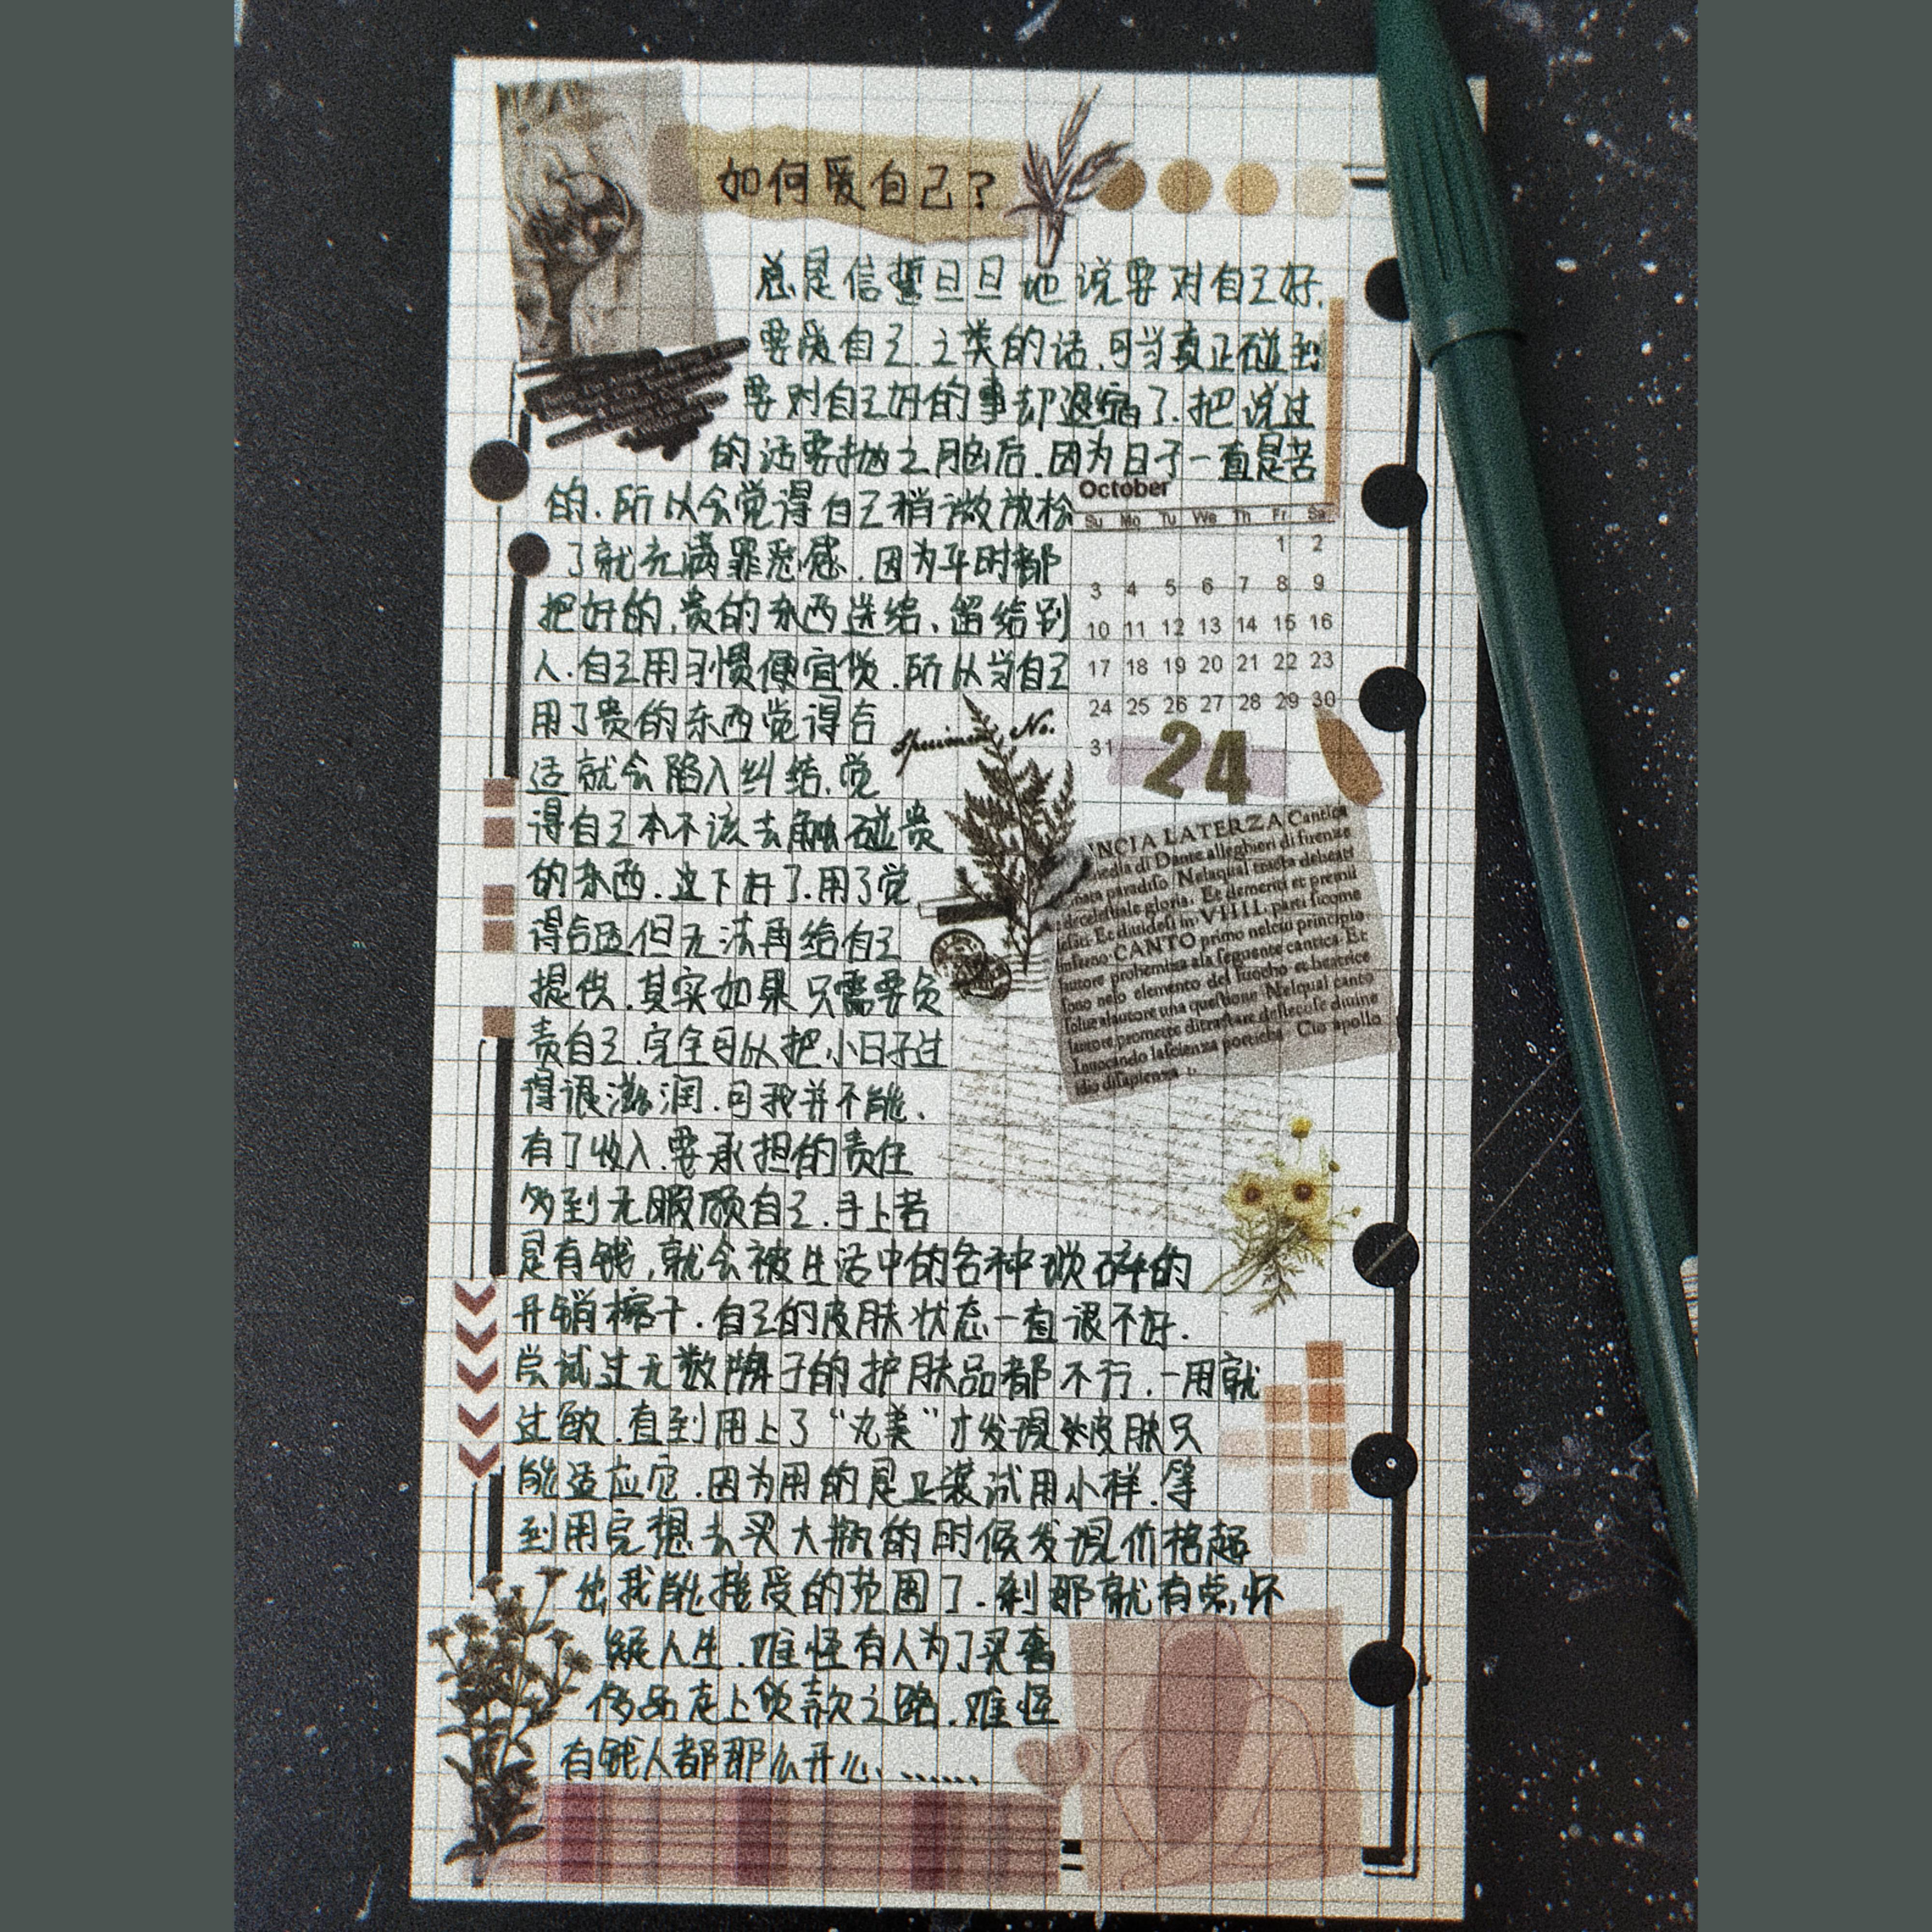 如何爱自己?
总是信誓旦旦地说要对自己好.
要爱自己之类的话.可当真正碰到
要对自己好的事却退缩了.把说过
的话要抛之脑后.因为日子一直是苦
的.所以会觉得自己稍微放松
了就充满罪恶感.因为平时都
把好的,贵的东西送给、留给别
人.自己用习惯便宜货.所以当自己
用了贵的东西觉得合
适就会陷入纠结.觉
得自己本不该去触碰贵
的东西.这下好了.用了觉
得合适但无法再给自己
提供.其实如果只需要负
责自己.完全可以把小日子过
得很滋润.可我并不能.
有了收入.要承担的责任
多到无暇顾自己.手上若
是有钱,就会被生活中的各种琐碎的
开销榨干.自己的皮肤状态一直很不好.
尝试过无数牌子的护肤品都不行.一用就
过敏.直到用上了“丸美”才发现烂皮肤只
能适应它.因为用的是正装试用小样.等
到用完想去买大瓶的时候发现价格超
出我能接受的范围了.刹那就有点怀
疑人生.难怪有人为了买奢
侈品走上贷款之路.难怪
有钱人都那么开心.......
October
Su Mo Tu We Th Fr Sa
1 2
3 4 5 6 7 8 9
10 11 12 13 14 15 16
17 18 19 20 21 22 23
24 25 26 27 28 29 30
31
24
Specimen No.
INCIA LATERZA Cantica
media di Dante alleghieri di firenze
nata paradiso. Nelaqual tracta debeati
decelestiale gloria. Et demeriti et premii
Et diuidesi in VIIII. parti sicome
inferno CANTO primo nelcui principio
lautore prohemiza ala seguente cantica Et
sono nelo elemento del fuocho et beatrice
solue alautore una questione Nelqual canto
lautore promette ditractare dellecose diuine
Inuocando lascienza poetica Cio apollo
idio disapienza